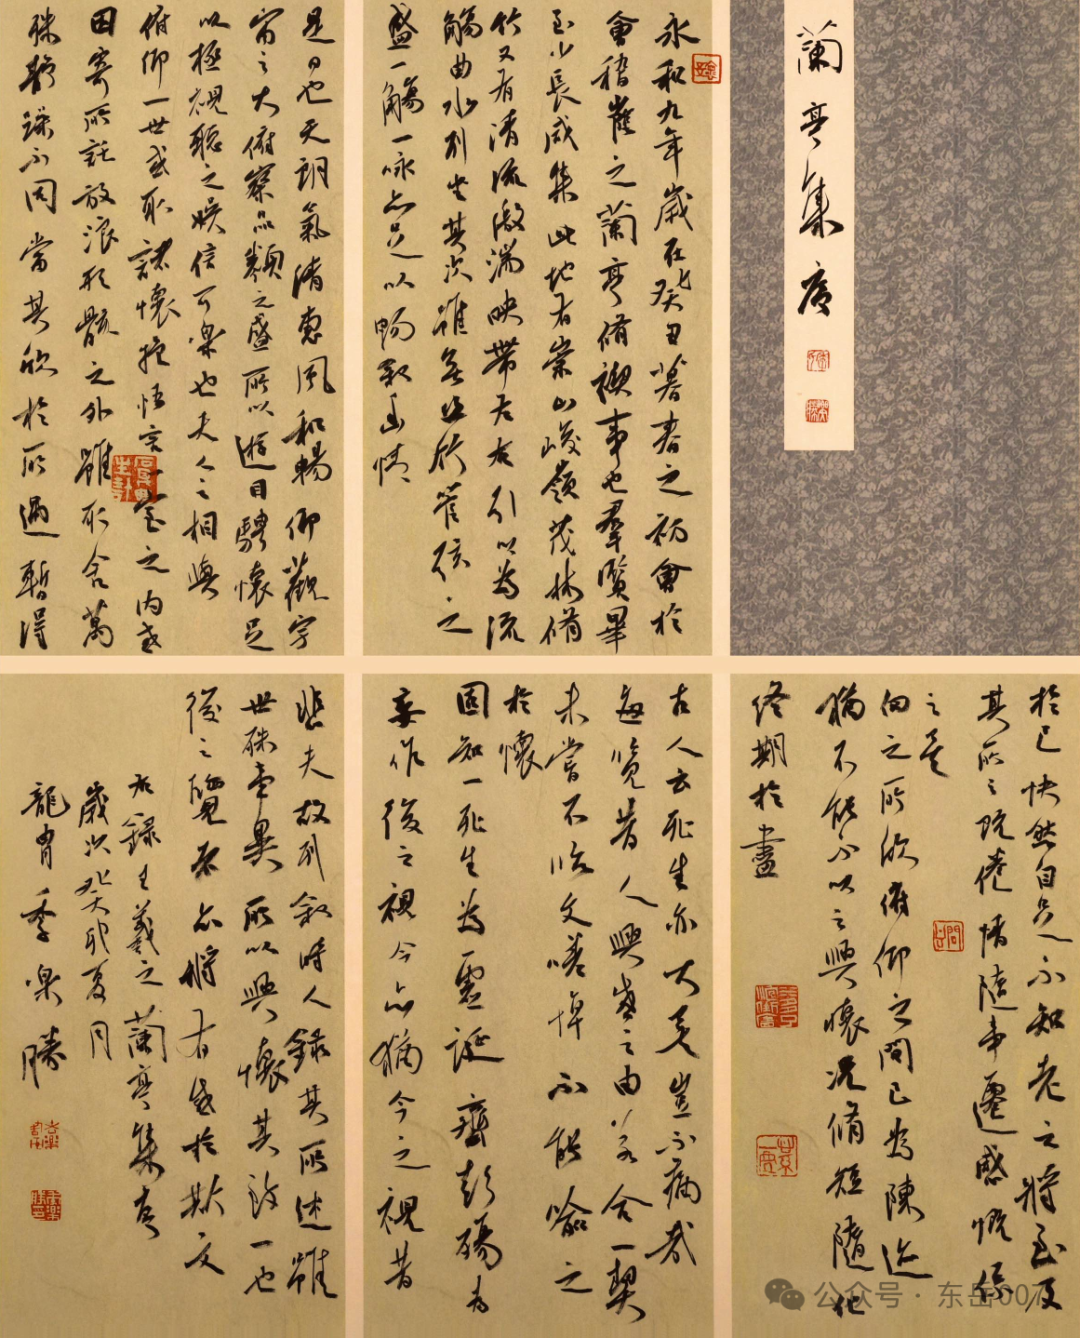 蘭亭集序
永和九年歲在癸丑暮春之初會於
會稽山陰之蘭亭脩禊事也羣賢畢
至少長咸集此地有崇山峻嶺茂林脩
竹又有清流激湍映帶左右引以為流
觴曲水列坐其次雖無絲竹管弦之
盛一觴一詠亦足以暢敘幽情
是日也天朗氣清惠風和暢仰觀宇
宙之大俯察品類之盛所以遊目騁懷足
以極視聽之娛信可樂也夫人之相與
俯仰一世或取諸懷抱悟言一室之內或
因寄所託放浪形骸之外雖取舍萬
殊靜躁不同當其欣於所遇暫得
於己快然自足不知老之將至及
其所之既倦情隨事遷感慨係
之矣
向之所欣俯仰之間已為陳迹
猶不能不以之興懷況脩短隨化
終期於盡
古人云死生亦大矣豈不痛哉
每覽昔人興感之由若合一契
未嘗不臨文嗟悼不能喻之
於懷
固知一死生為虛誕齊彭殤為
妄作後之視今亦猶今之視昔
悲夫故列敘時人錄其所述雖
世殊事異所以興懷其致一也
後之覽者亦將有感於斯文
右錄王羲之蘭亭集序
歲次癸卯夏月
龍胄季樂勝
公众号·东岳007